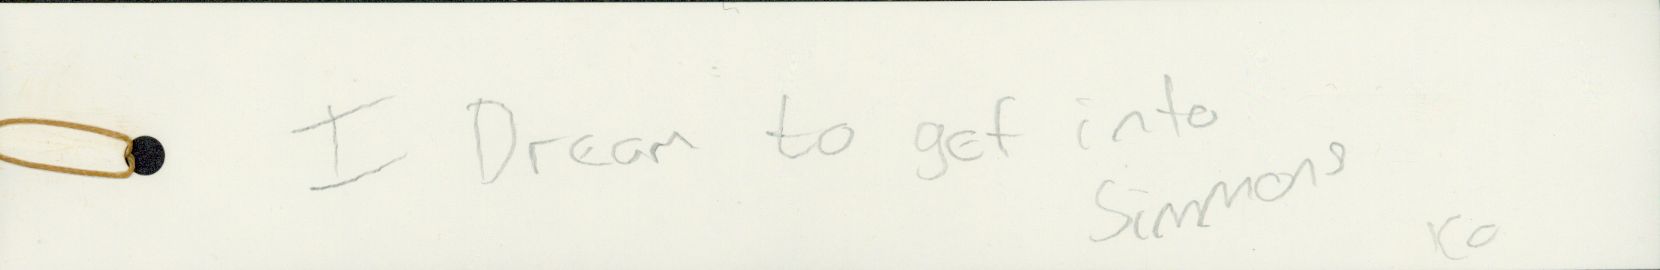 I Dream to get into
Simmons
KO